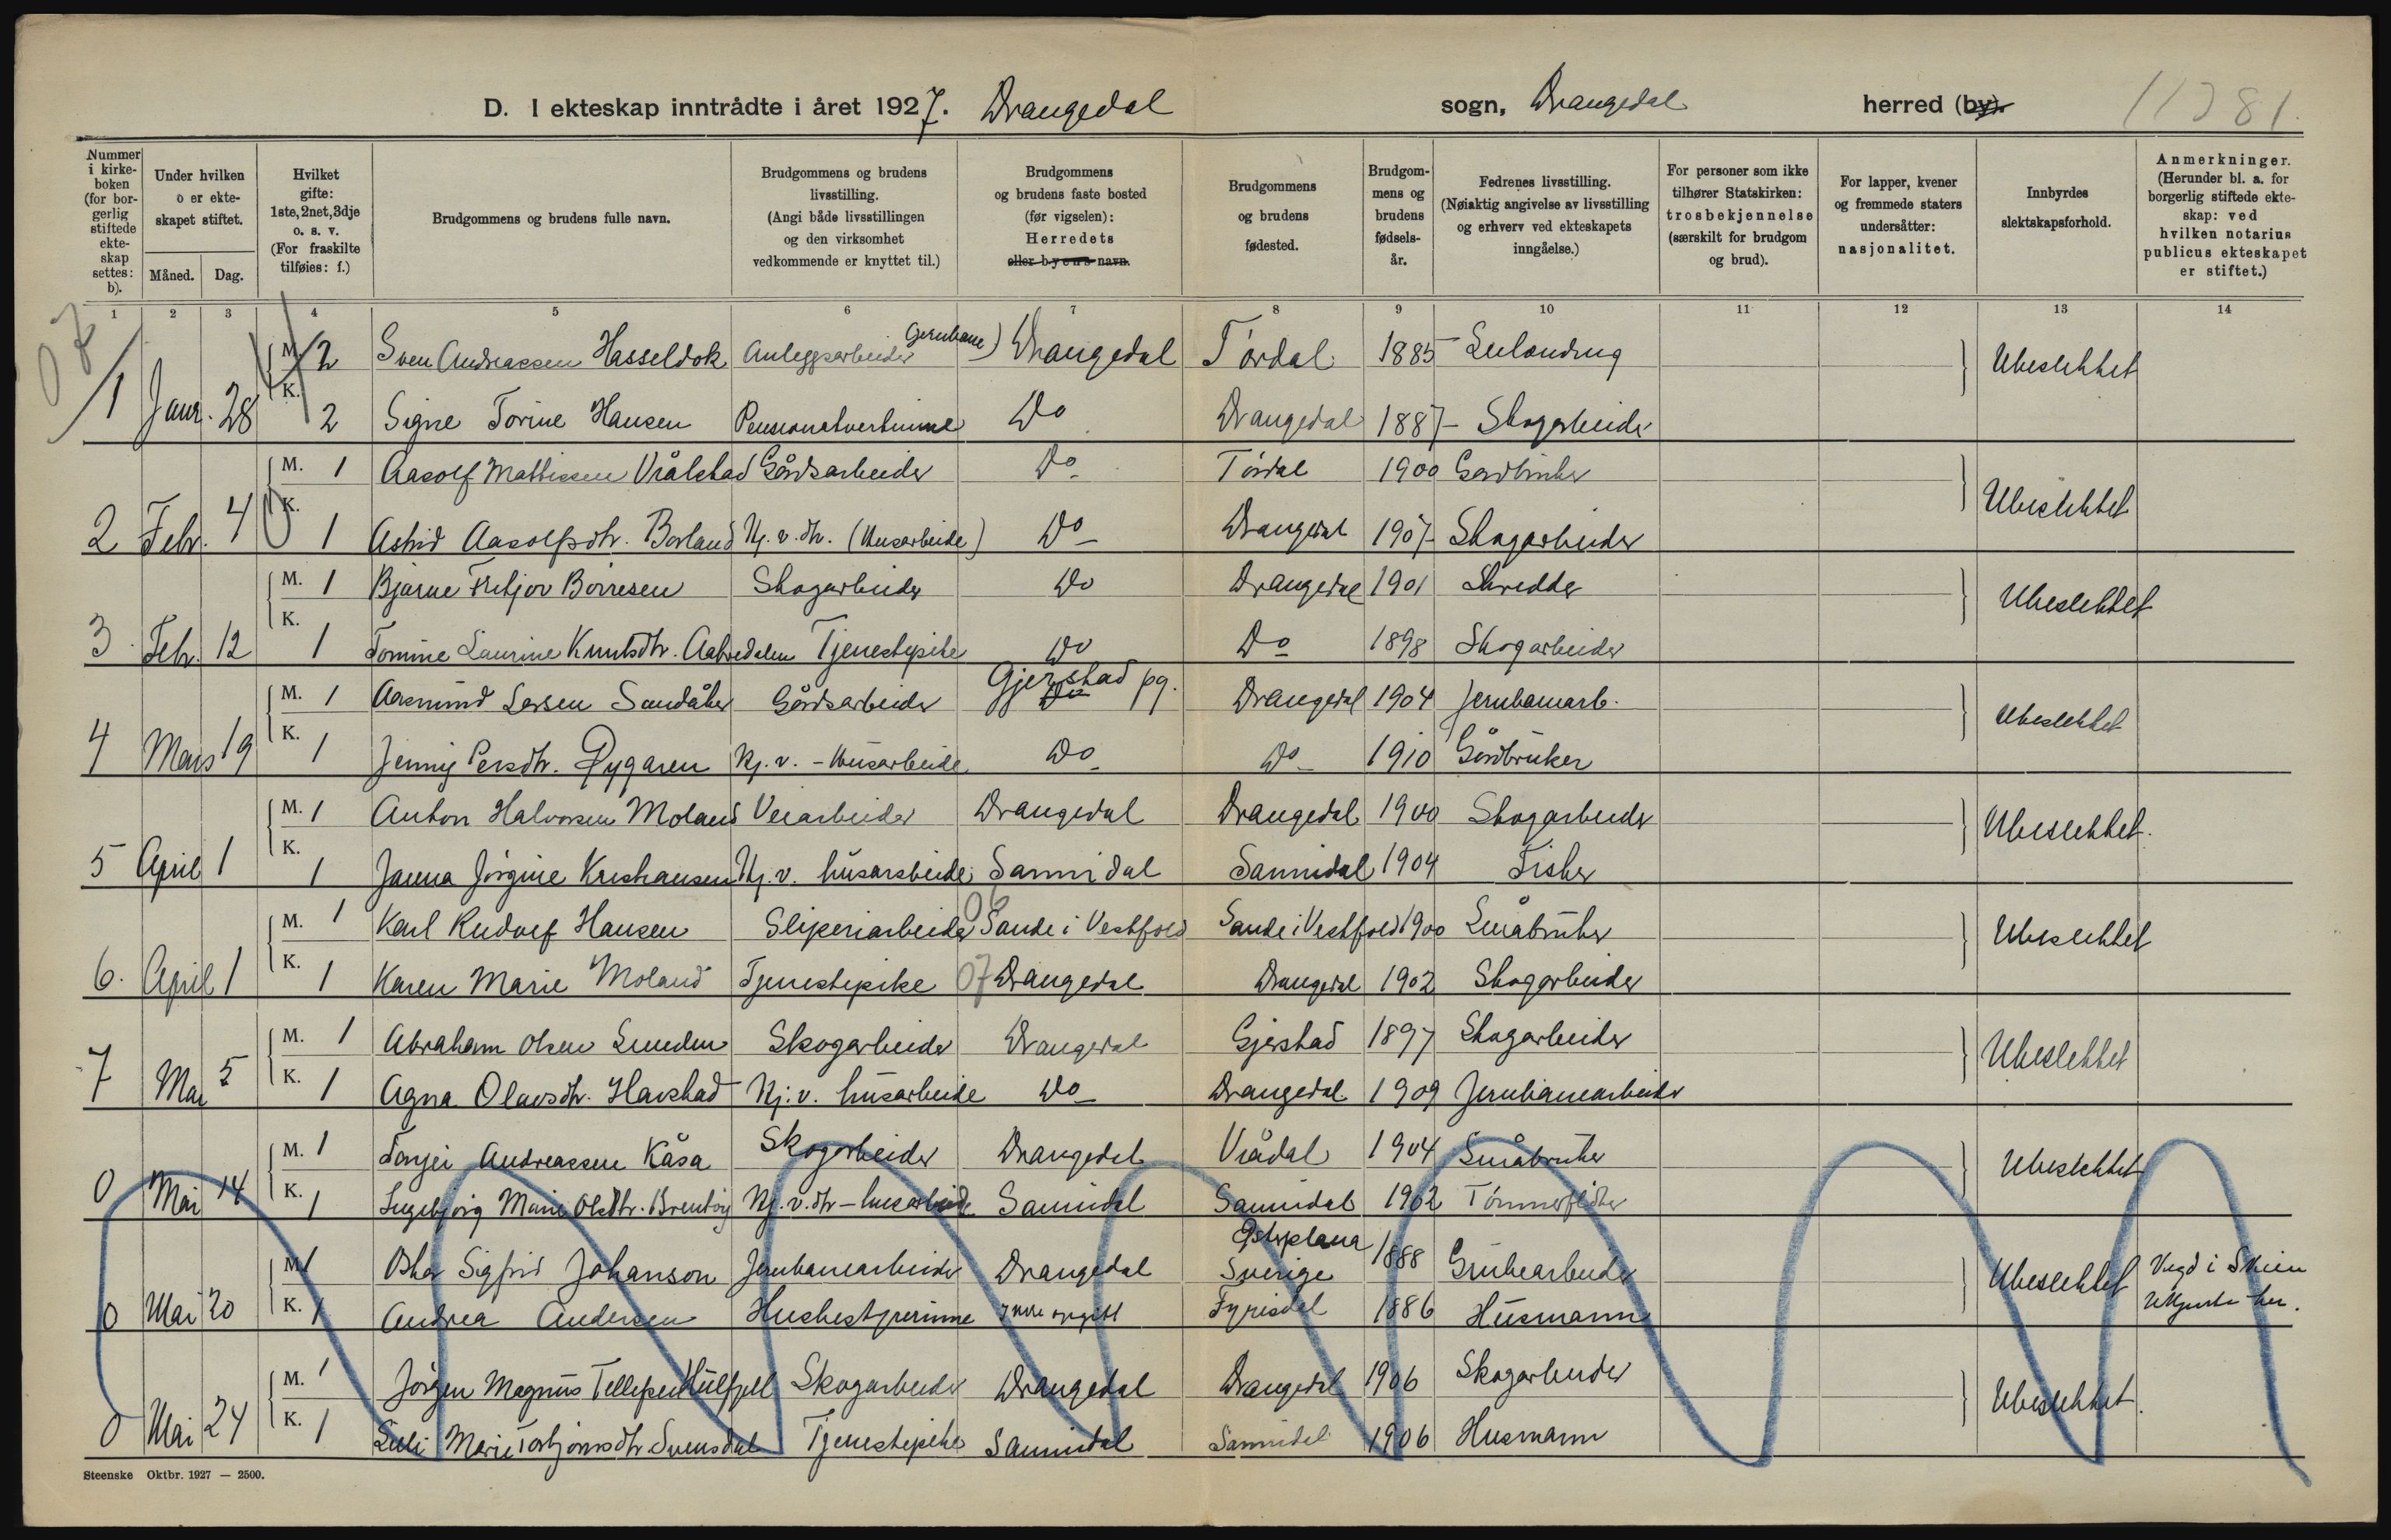 D. I ekteskap inntrådte i året 1927. Drangedal sogn, Drangedal herred (by).
Nummer i kirkeboken (for borgerlig stiftede ekteskap settes: b).
Under hvilken o er ekteskapet stiftet. Måned. Dag.
Hvilket gifte: 1ste, 2net, 3dje o. s. v. (For fraskilte tilføies: f.)
Brudgommens og brudens fulle navn.
Brudgommens og brudens livsstilling. (Angi både livsstillingen og den virksomhet vedkommende er knyttet til.)
Brudgommens og brudens faste bosted (før vigselen): Herredets eller byens navn.
Brudgommens og brudens fødested.
Brudgommens og brudens fødselsår.
Fedrenes livsstilling. (Nøiaktig angivelse av livsstilling og erhverv ved ekteskapets inngåelse.)
For personer som ikke tilhører Statskirken: trosbekjennelse (særskilt for brudgom og brud).
For lapper, kvener og fremmede staters undersåtter: nasjonalitet.
Innbyrdes slektskapsforhold.
Anmerkninger. (Herunder bl. a. for borgerlig stiftede ekteskap: ved hvilken notarius publicus ekteskapet er stiftet.)
1 2 3 4 5 6 7 8 9 10 11 12 13 14
07
M. 2 Sven Andreassen Hasseldok Anleggsarbeider Jernbane) Drangedal Tørdal 1885 Ubeslektet
1 Janr. 28 K. 2 Signe Torine Hansen Pensionatvertinne Do Drangedal 1887 Skogarbeider
M. 1 Aasolf Mattissen Vrålstad Gårdsarbeider Do Tørdal 1900 Gardbruker Ubeslektet
2 Febr. 4 K. 1 Astrid Aasolfsdtr. Borland Hj. v. dtr. (Husarbeide) Do Drangedal 1907 Skogarbeider
M. 1 Bjarne Fritjov Børresen Skogarbeider Do Drangedal 1901 Skredder Ubeslektet
3 Febr. 12 K. 1 Tomine Laurine Knutsdtr. Tjenestepike Do Do 1898 Skogarbeider
M. 1 Aasmund Larsen Sandåker Gårdsarbeider Gjerstad pg. Do Drangedal 1904 Jernbanearb. Ubeslektet
4 Mars 19 K. 1 Jenny Persdtr. Dygaren Hj. v. - Husarbeide Do Do 1910 Gårdbruker
M. 1 Anton Halvorsen Moland Veiarbeider Drangedal Drangedal 1900 Skogarbeider Ubeslektet.
5 April 1 K. 1 Janna Jørgine Kristiansen Hj. v. husarbeide Sannidal Sannidal 1904 Fisker
M. 1 Karl Rudolf Hansen Sliperiarbeider 06 Sande i Vestfold Sande i Vestfold 1900 Småbruker Ubeslektet
6. April 1 K. 1 Karen Marie Moland Tjenestepike 07 Drangedal Drangedal 1902 Skogarbeider
M. 1 Abraham Olsen Lunden Skogarbeider Drangedal Gjerstad 1897 Skogarbeider Ubeslektet
7 Mai 5 K. 1 Agna Olavsdtr. Havstad Hj. v. husarbeide Do Drangedal 1909 Jernbanearbeider
M. 1 Tarjei Andreassen Kåsa Skogarbeider Drangedal Vrådal 1904 Småbruker Ubeslektet
0 Mai 14 K. 1 Ingebjørg Marie Olsdtr. Hj. v. dtr - husarbeide Sannidal Sannidal 1902 Tømmerfløter
M. 1 Oskar Sigfrid Johanson Jernbanearbeider Drangedal Østerplana Sverige 1888 Grubearbeider Ubeslektet Viegd i Skien
0 Mai 20 K. 1 Andrea Andersen Husbestyrerinne Ikke opgitt Fyrisdal 1886 Husmann her.
M. 1 Jørgen Magnus Tellefsen Skogarbeider Drangedal Drangedal 1906 Skogarbeider Ubeslektet.
0 Mai 24 K. 1 Marie Torbjørnsdtr. Svensdal Tjenestepike Sannidal Sannidal 1906 Husmann
Steenske Oktbr. 1927 — 2500.